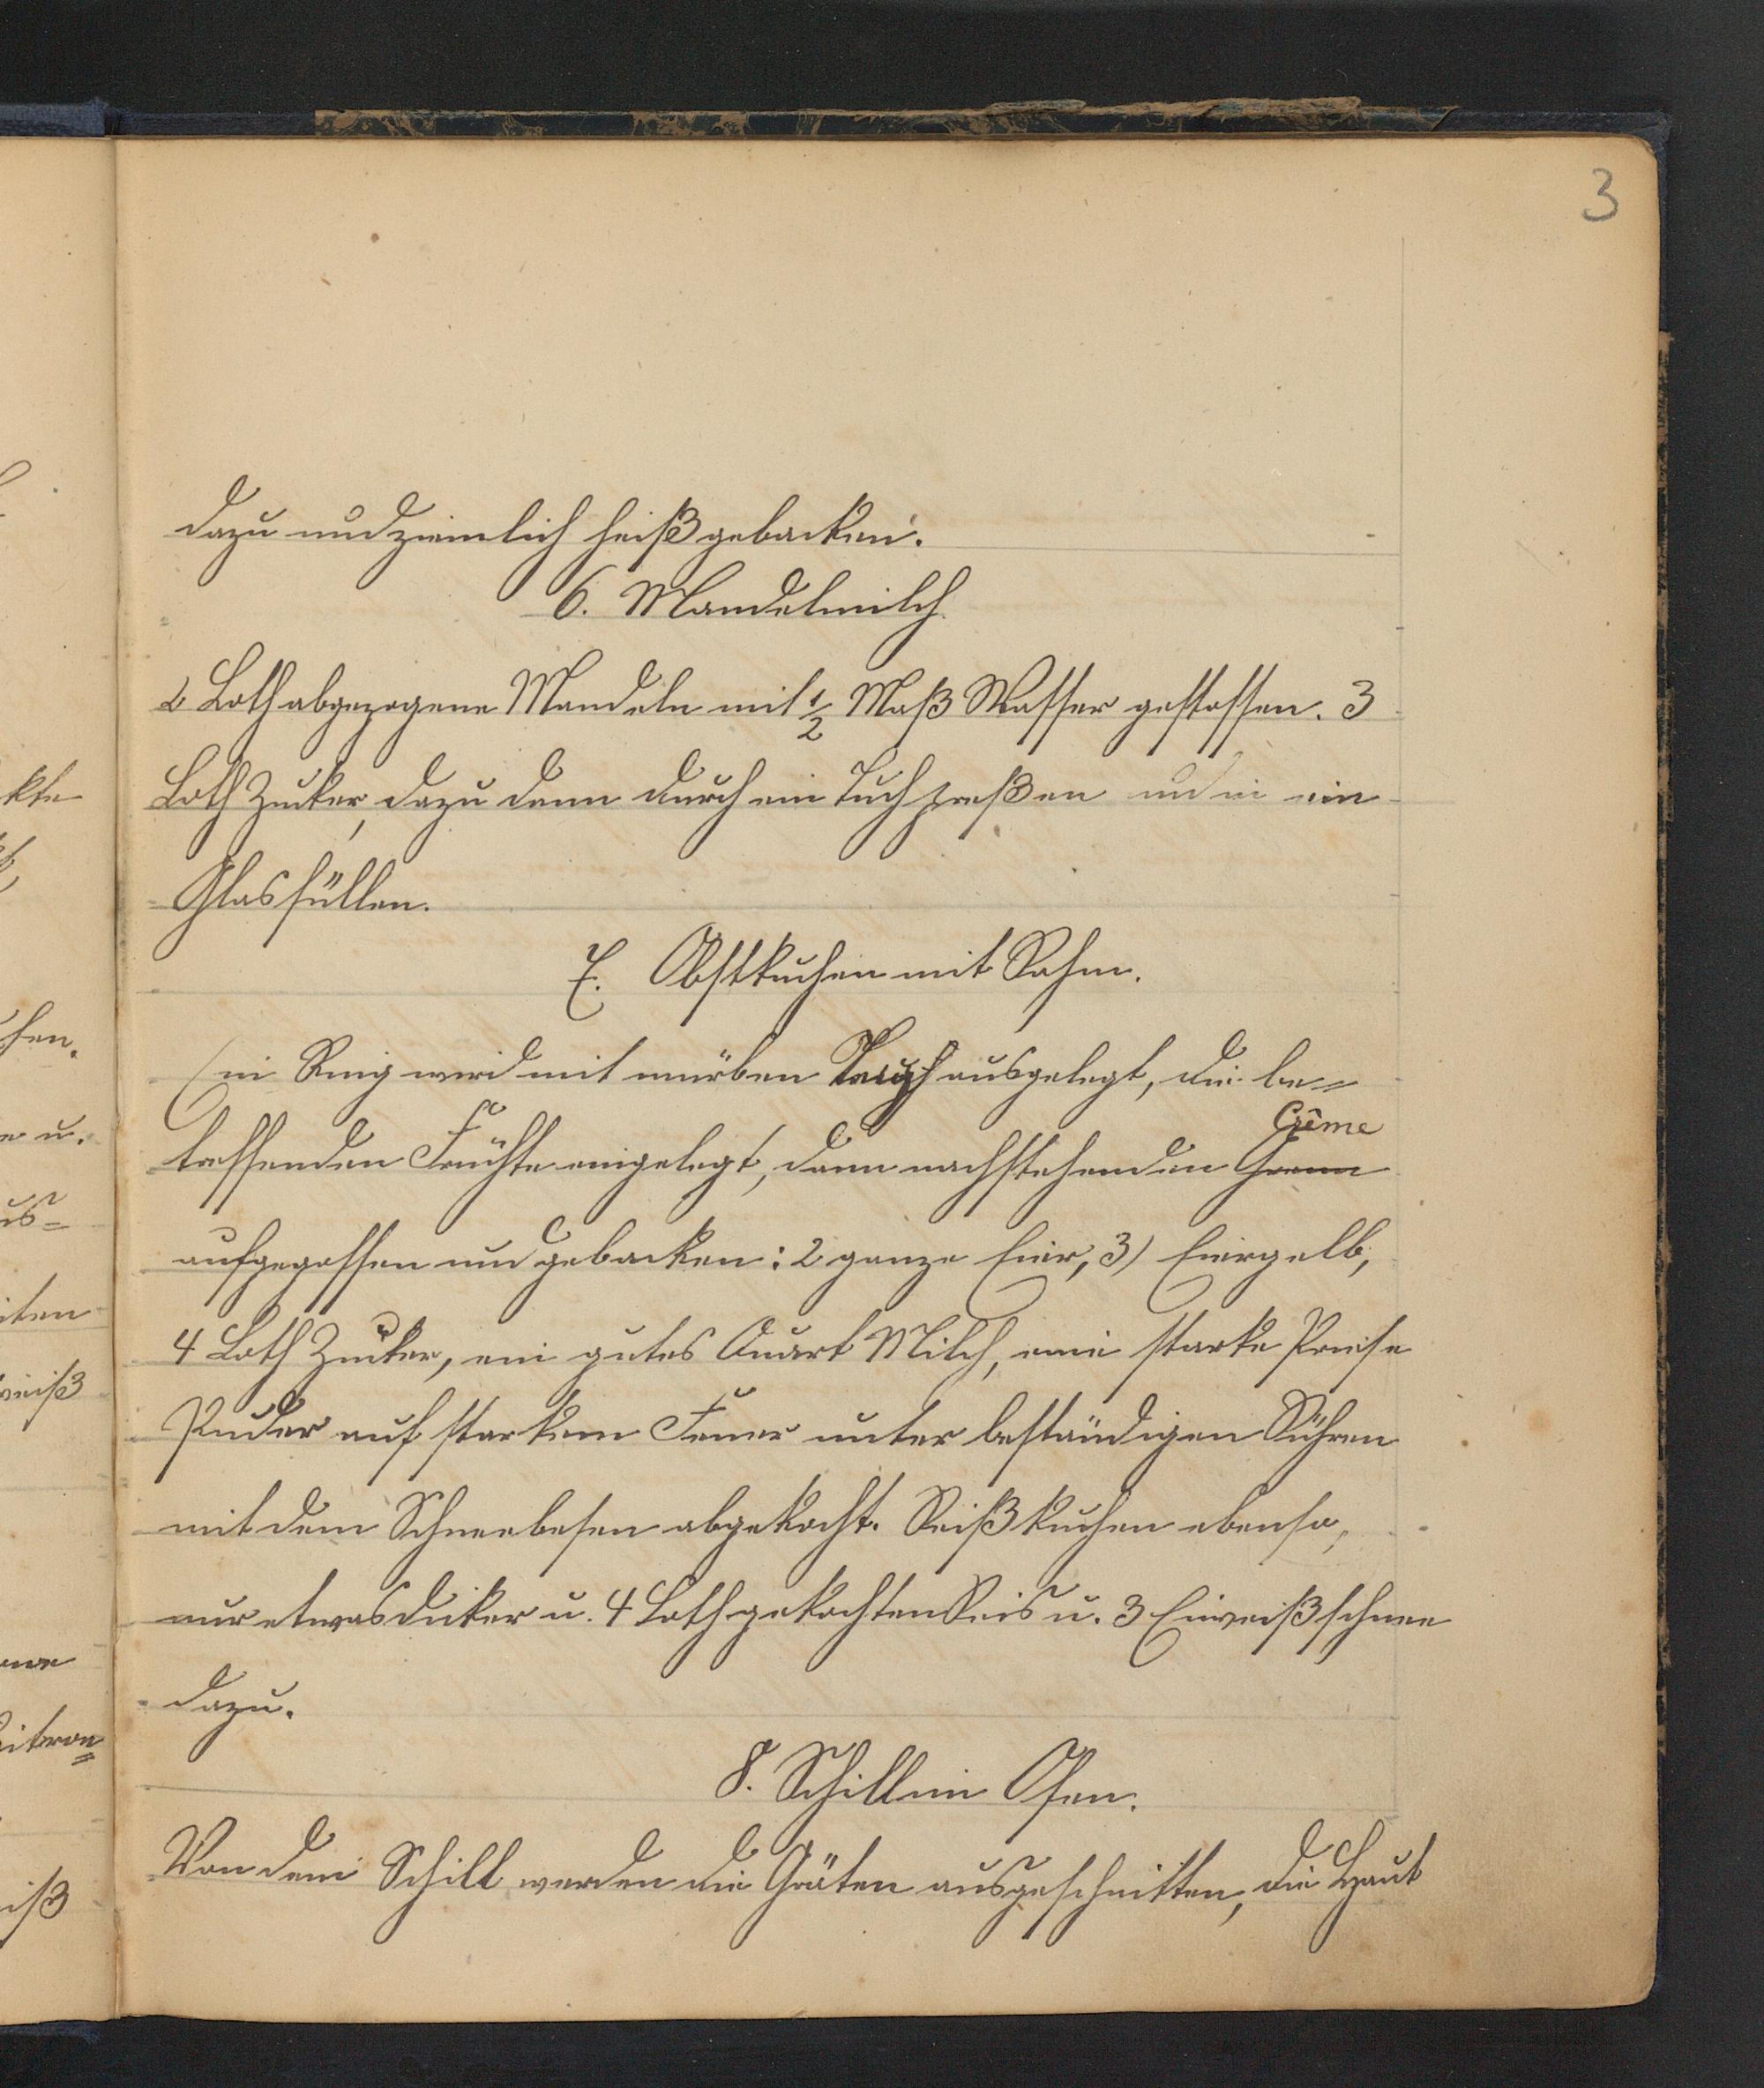 3
dazu und ziemlich heiß gebacken.
6. Mandelmilch.
6 Loth abgezogene Mandeln mit ½ Maß Wasser gestossen. 3
Loth Zucker, dazu dann durch ein Tuch preßen und in ein
Glas füllen.
7. Obstkuchen mit Rahm.
Ein Ring wird mit mürben Teich ausgelegt, die be=
treffenden Früchte eingelegt, dann nachstehenden Crême
aufgegossen und gebacken: 2 ganze Eier, 3) Eiergelb,
4 Loth Zucker, ein gutes Quart Milch, eine starke Priese
Puder auf starkem Feuer unter beständigen Rühren
mit dem Schneebesen abgekocht. Reißkuchen ebenso,
nur etwas dicker u. 4 Loth gekochten Reis u. 3 Eiweißschnee
dazu.
8. Schill im Ofen.
Von dem Schill werden die Gräten ausgeschnitten, die Haut
kte
hen.
e u.
us=
iten
weiß
itron=
iß